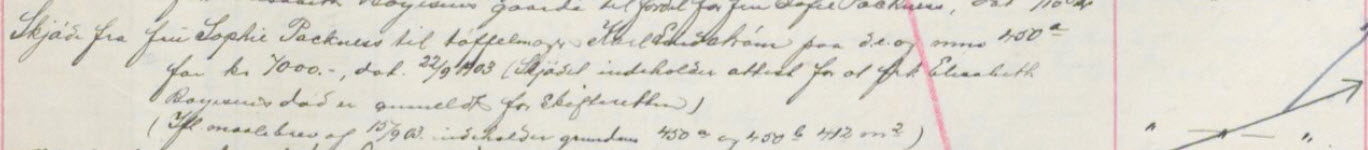 gaard til fordel for fru Sofie Packness, dat.
Skjöde fra fru Sophie Packness til töffelmager Karl Lindström paa d.e. og mno 450 a
for kr 7000.-, dat. 22/9 1903 (Skjödet indeholder attest for at frk Elisabeth
Boyesens död er anmeldt for Skifteretten)
(Ifl. maalebrev af 15/9 03. indeholder grunden 450 a og 450 b 412 m²)
" — " — "